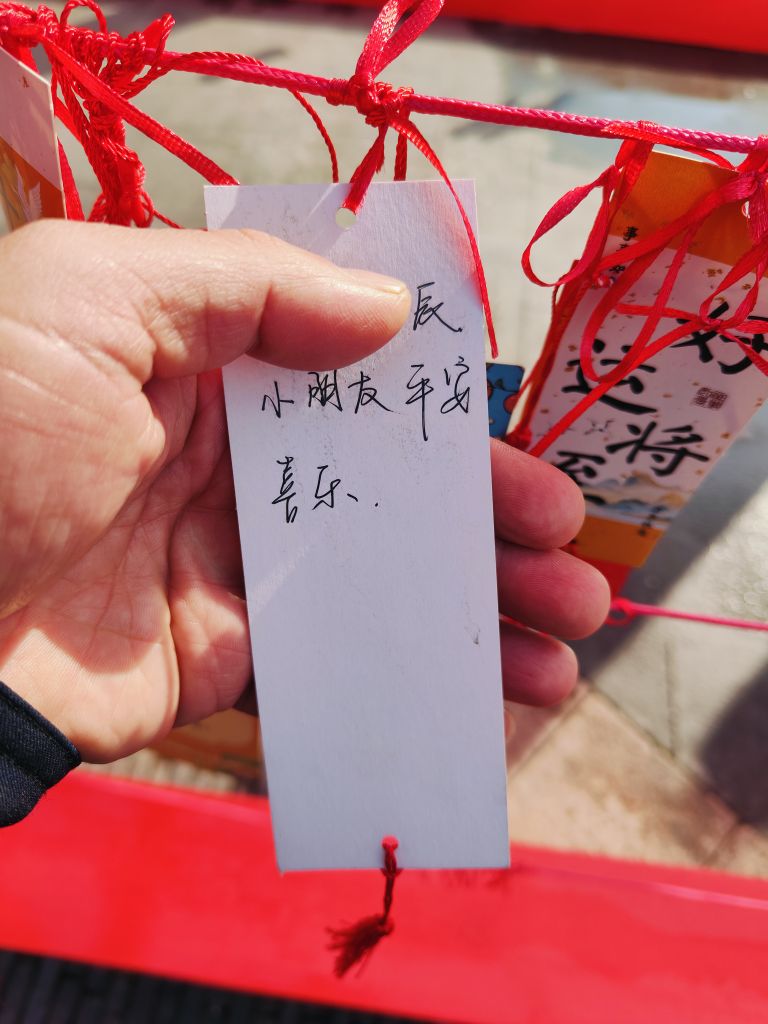 辰
小朋友平安
喜乐.
好
运
将
至